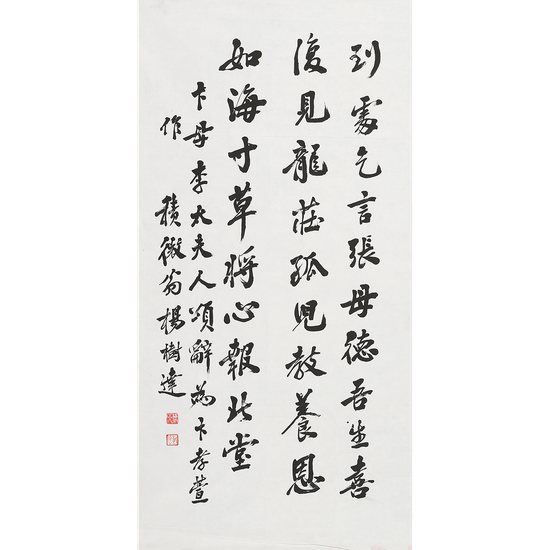 到處乞言張母德吾生喜
復見龍莊孤兒教養恩
如海寸草將心報北堂
卞母李太夫人頌辭為卞孝萱
作
積微翁楊樹達